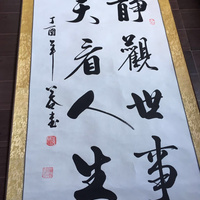 靜觀世事
笑看人生
丁酉年